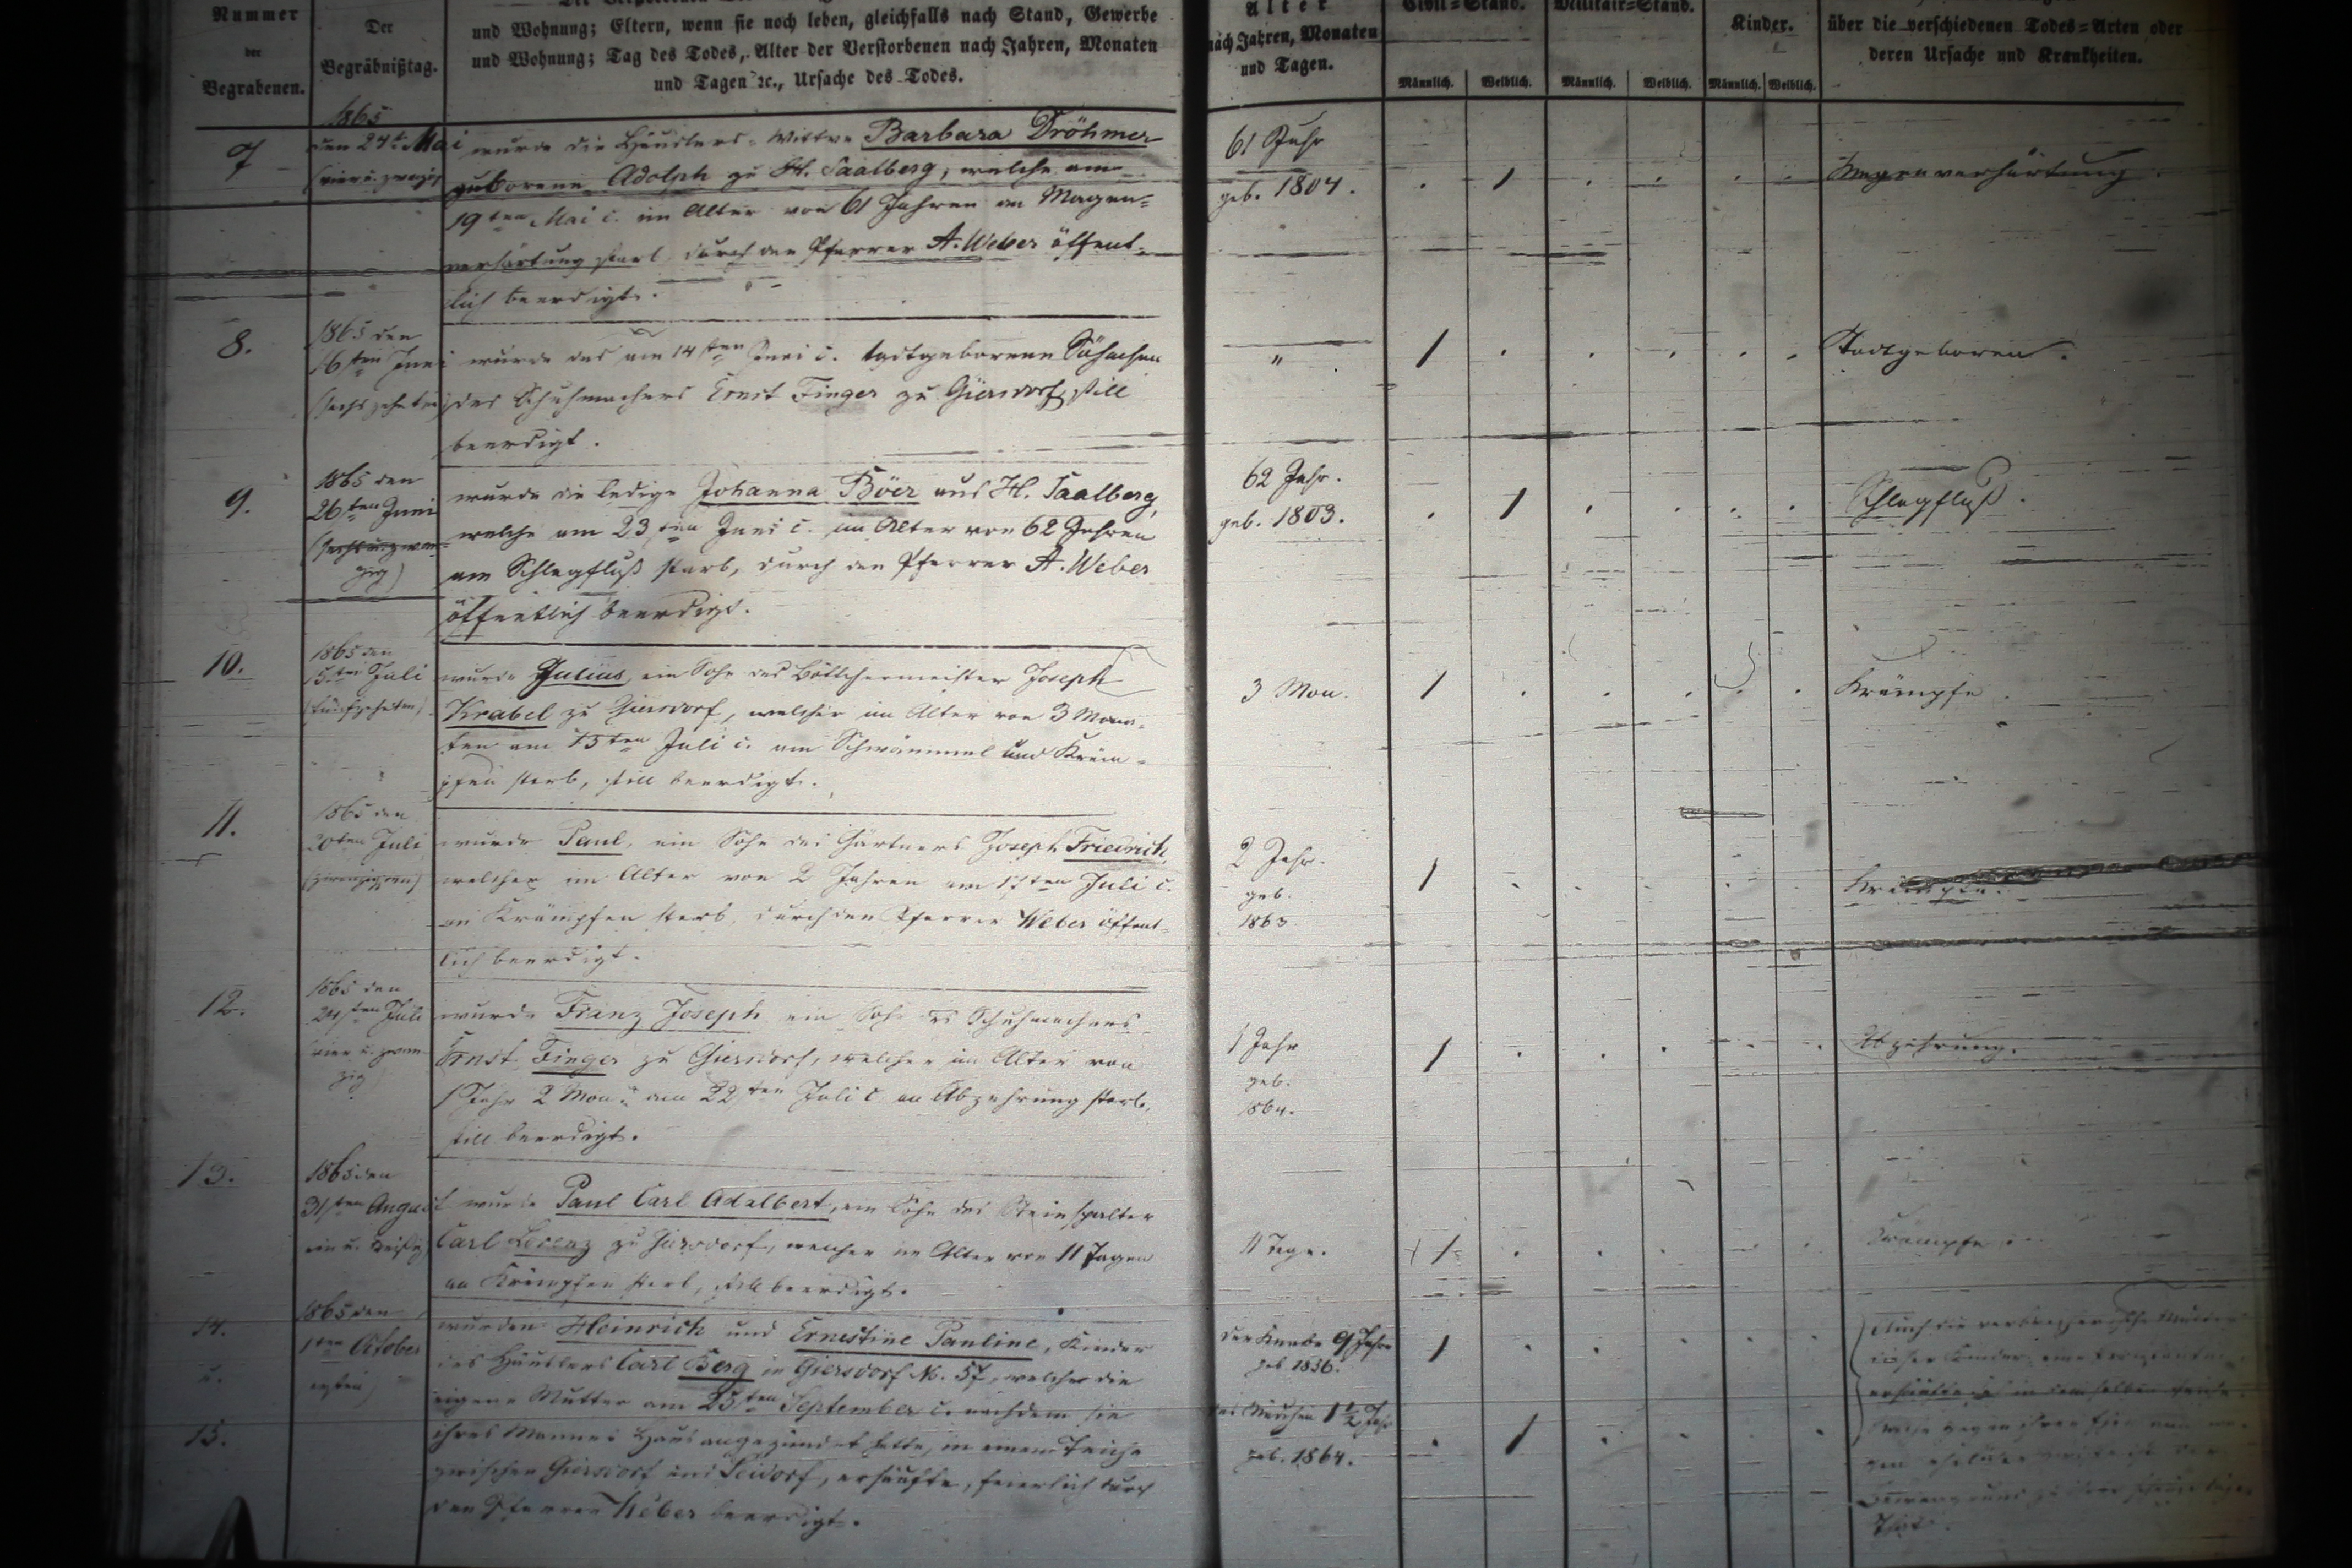 Nummer
der
Begrabenen.
Der
Begräbnißtag.
und Wohnung; Eltern, wenn sie noch leben, gleichfalls nach Stand, Gewerbe
und Wohnung; Tag des Todes, Alter der Verstorbenen nach Jahren, Monaten
und Tagen ꝛc., Ursache des Todes.
Alter
nach Jahren, Monaten
und Tagen.
Civil=Stand.
Militair=Stand.
Kinder.
Männlich. Weiblich. Männlich. Weiblich. Männlich. Weiblich.
über die verschiedenen Todes=Arten oder
deren Ursache und Krankheiten.
7
1865
den 24t. Mai
(vier u. zwanzig
wurde die Häuslers=Wittwe Barbara Dröhmer
geborene Adolph zu H. Saalberg, welche am
19ten Mai c. im Alter von 61 Jahren an Magen=
verhärtung starb durch den Pfarrer A. Weber öffent=
lich beerdigt.
61 Jahr
geb. 1804.
Magenverhärtung.
8.
1865 den
16ten Juni
(sechszehnten)
wurde das am 14ten Juni c. todtgeborene Söhnchen
des Schuhmachers Ernst Finger zu Giersdorf still
beerdigt.
"
Todtgeboren.
9.
1865 den
26ten Juni
(sechs u. zwan=
zig)
wurde die ledige Johanna Böer aus H. Saalberg,
welche am 23ten Juni c. im Alter von 62 Jahren
am Schlagfluß starb, durch den Pfarrer A. Weber
öffentlich beerdigt.
62 Jahr.
geb. 1803.
Schlagfluß.
10.
1865 den
15ten Juli
(fünfzehnten)
wurde Julius, ein Sohn des Böttchermeister Joseph
Krabel zu Giersdorf, welcher im Alter von 3 Mona=
ten am 13ten Juli c. am Schwämmel und Kräm=
pfen starb, still beerdigt.
3 Mon.
Krämpfe.
11.
1865 den
20ten Juli
(zwanzigsten)
wurde Paul, ein Sohn des Gärtners Joseph Friedrich,
welcher im Alter von 2 Jahren am 17ten Juli c.
an Krämpfen starb, durch den Pfarrer Weber öffent=
lich beerdigt.
2 Jahr.
geb.
1863.
Krämpfe.
12.
1865 den
24sten Juli
vier u. zwan=
zig)
wurde Franz Joseph ein Sohn des Schuhmachers
Ernst Finger zu Giersdorf, welcher im Alter von
1 Jahr 2 Mon. am 22ten Juli c. an Abzehrung starb,
still beerdigt.
1 Jahr
geb.
1864.
Abzehrung.
13.
1865 den
31sten August
ein u. dreißig)
wurde Paul Carl Adalbert, ein Sohn des Steinspalter
Carl Lorenz zu Giersdorf, welcher im Alter von 11 Tagen
an Krämpfen starb, still beerdigt.
11 Tage.
Krämpfe.
14.
u.
15.
1865 den
1ten October
ersten)
wurden Heinrich und Ernestine Pauline, Kinder
des Häuslers Carl Berg in Giersdorf No. 57, welche die
eigene Mutter am 25ten September c. nachdem sie
ihres Mannes Haus angezündet hatte, in einem Teiche
zwischen Giersdorf und Seidorf, ersäufte, feierlich durch
den Pfarrer Weber beerdigt.
der Knabe 9 Jahre
geb. 1856.
das Mädchen 1 1/2 Jahr
geb. 1864.
Auch die verbrecherische Mutter
dieser Kinder
ersäufte in demselben Teiche
That.